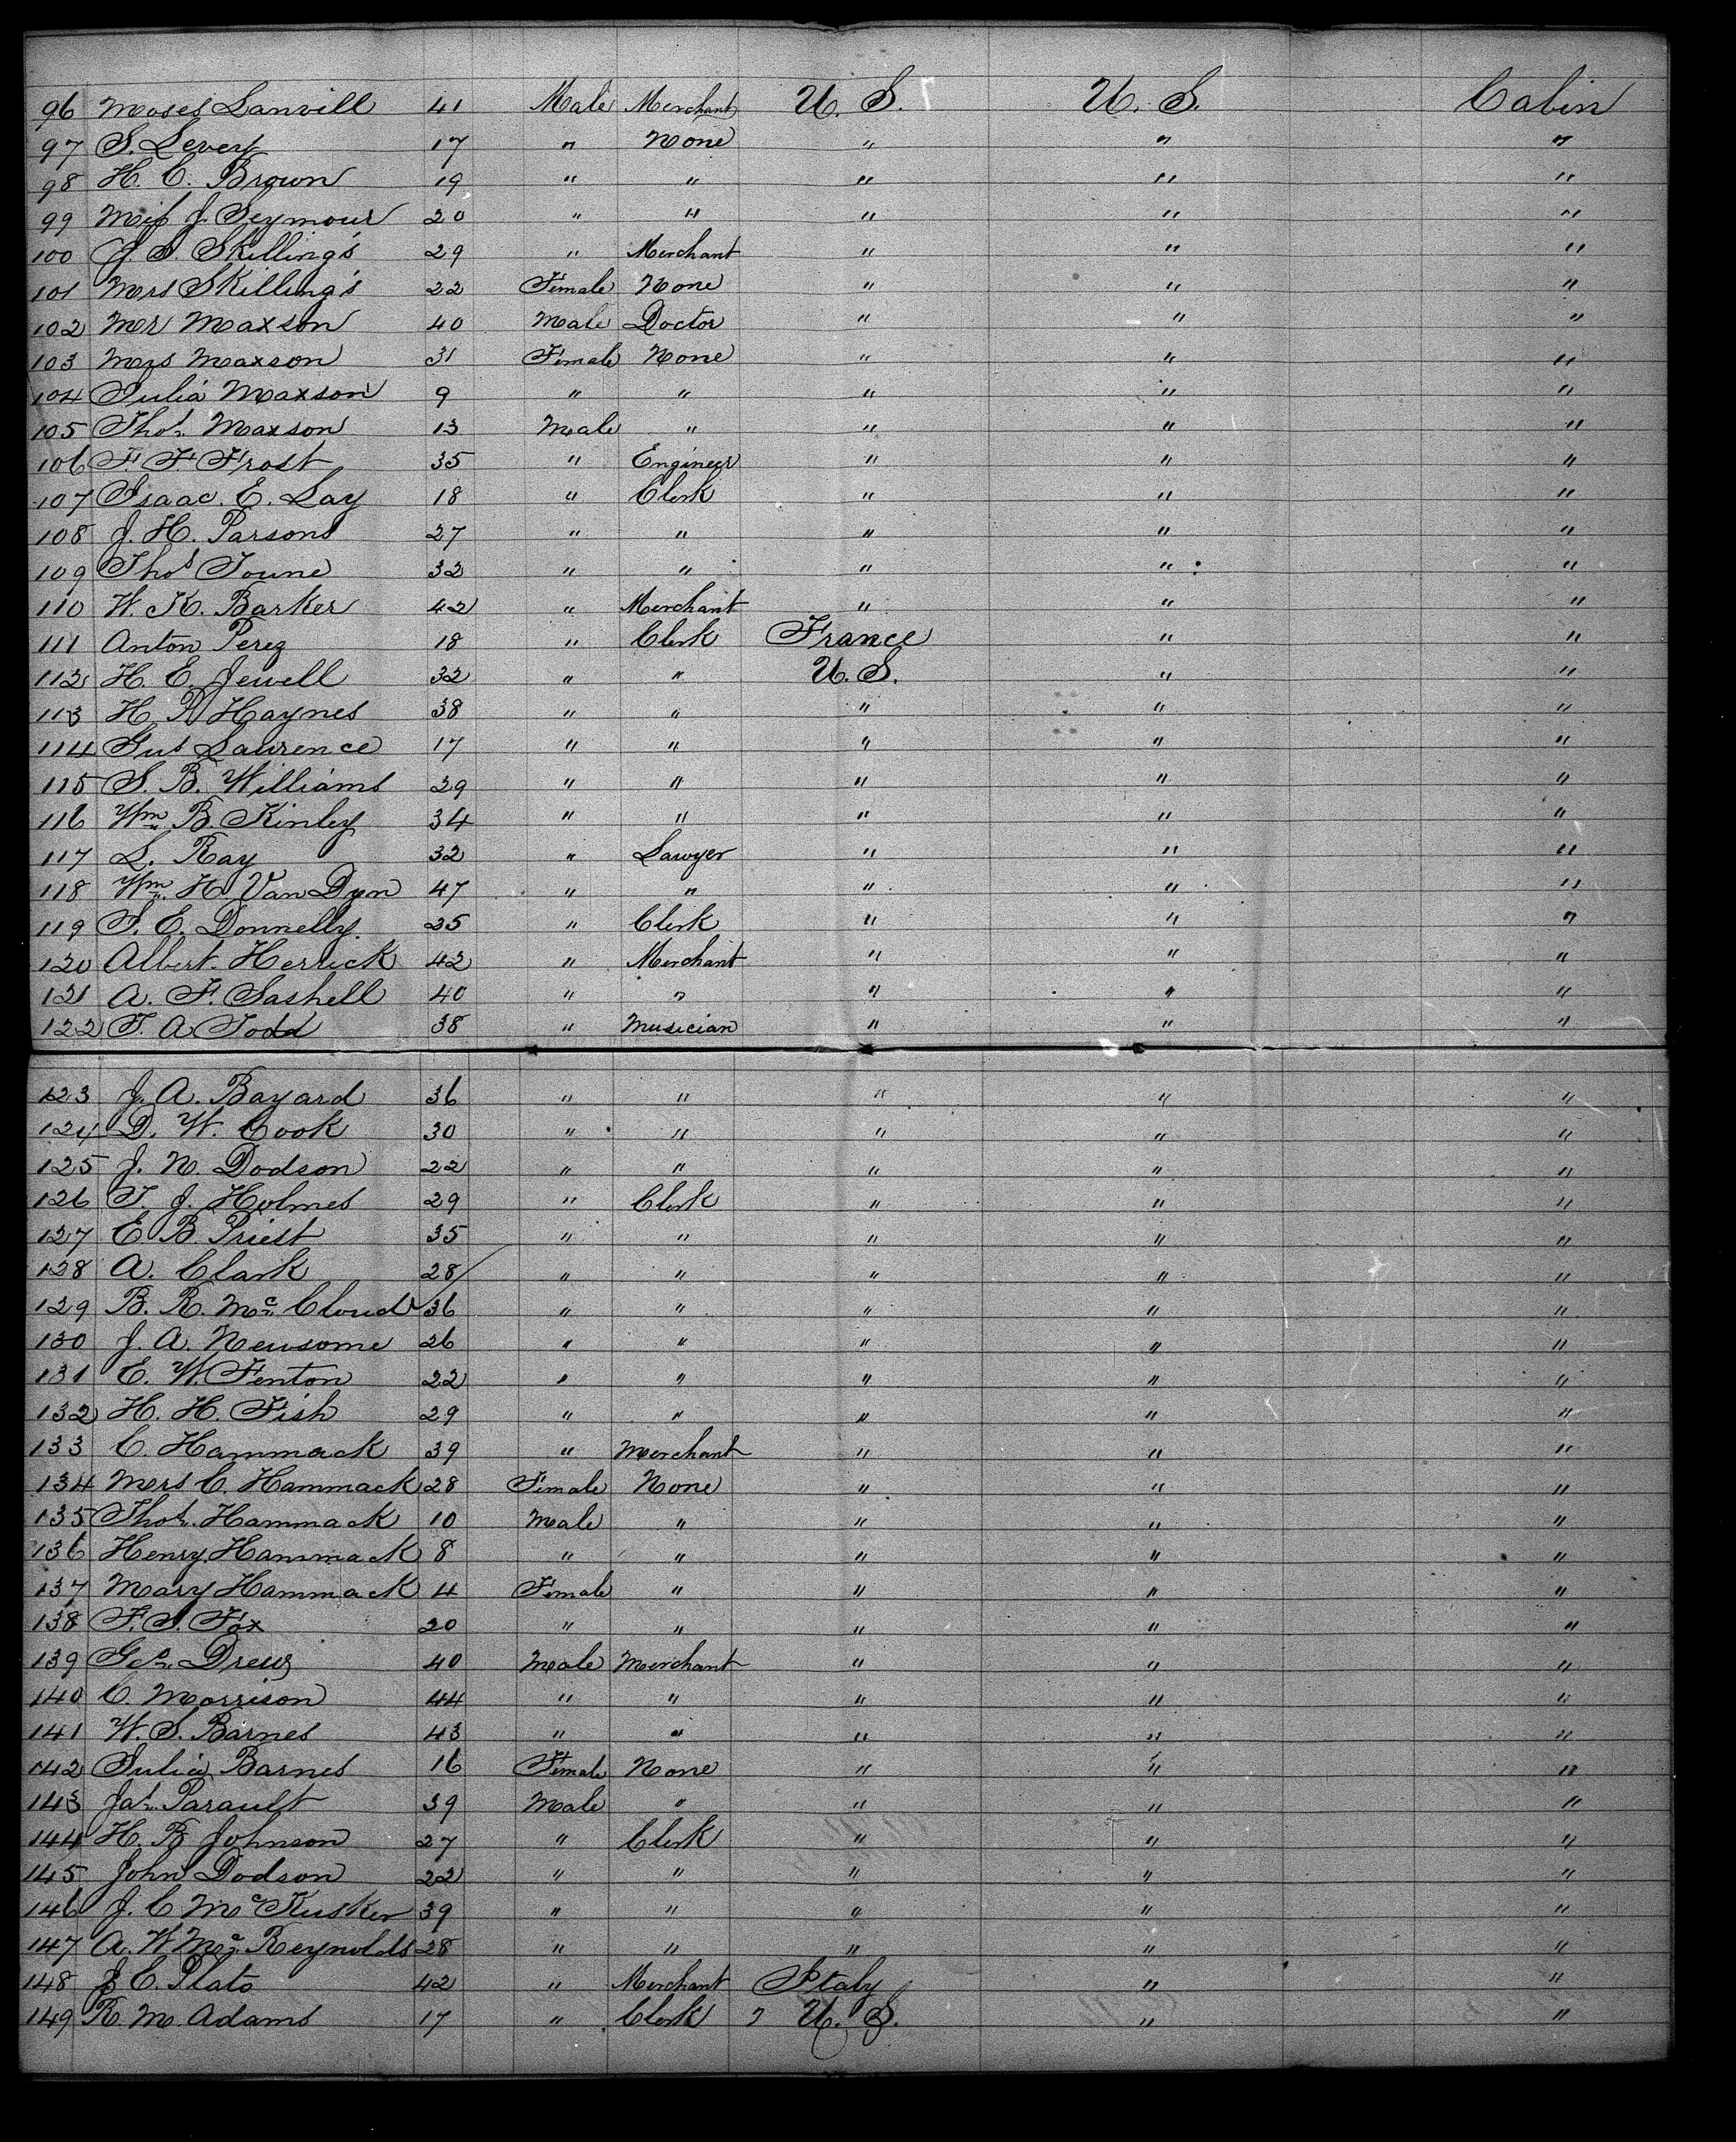 96 Moses Lanvill 41 Male Merchant U. S. U. S. Cabin
97 S. Levey 17 " None " " "
98 H. C. Brown 19 " " " " "
99 Miss J. Seymour 20 " " " " "
100 J. S. Skilling's 29 " Merchant " " "
101 Mrs Skilling's 22 Female None " " "
102 Mr Maxson 40 Male Doctor " " "
103 Mrs Maxson 31 Female None " " "
104 Julia Maxson 9 " " " " "
105 Thos. Maxson 13 Male " " " "
106 F. F Frost 35 " Engineer " " "
107 Isaac. E. Lay 18 " Clerk " " "
108 J. H. Parsons 27 " " " " "
109 Thos Toune 32 " " " " "
110 W. K. Barker 42 " Merchant " " "
111 Anton Perez 18 " Clerk France " "
112 H. E. Jewell 32 " " U. S. " "
113 H. R Haynes 38 " " " " "
114 Gus Lawrence 17 " " " " "
115 S. B. Williams 29 " " " " "
116 Wm. B. Kinley 34 " " " " "
117 L. Ray 32 " Lawyer " " "
118 Wm. H. Van Dyn 47 " " " " "
119 T. E. Donnelly. 25 " Clerk " " "
120 Albert. Herrick 42 " Merchant " " "
121 A. F. Sashell 40 " " " " "
122 T. A Todd 38 " Musician " " "
123 J. A. Bayard 36 " " " " "
124 D. W. Cook 30 " " " " "
125 J. N. Dodson 22 " " " " "
126 T. J. Holmes 29 " Clerk " " "
127 E B. Priest 35 " " " " "
128 A. Clark 28 " " " " "
129 B. R. Mc. Cloud 36 " " " " "
130 J. A. Newsome 26 " " " " "
131 E. W. Fenton 22 " " " " "
132 H. H. Fish 29 " " " " "
133 C. Hammack 39 " Merchant " " "
134 Mrs C. Hammack 28 Female None " " "
135 Thos. Hammack 10 Male " " " "
136 Henry. Hammack 8 " " " " "
137 Mary Hammack 4 Female " " " "
138 F. S. Fox 20 " " " " "
139 Geo. Drew 40 Male Merchant " " "
140 C. Morrison 44 " " " " "
141 W. S. Barnes 43 " " " " "
142 Julia Barnes 16 Female None " " "
143 Jas. Parault 39 Male " " " "
144 H. B Johnson 27 " Clerk " " "
145 John Dodson 22 " " " " "
146 J. C Mc Kusker 39 " " " " "
147 A. W Mc. Reynolds 28 " " " " "
148 J C. Plato 42 " Merchant Italy " "
149 R. M. Adams 17 " Clerk " U. S. " "